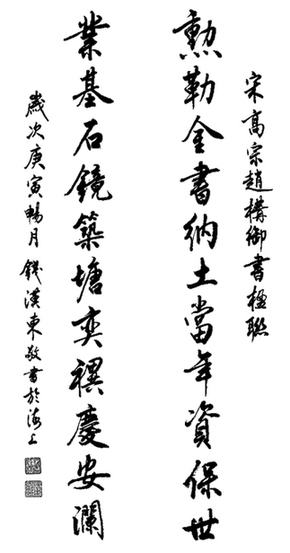 宋高宗趙構御書楹聯
勲勒金書納土當年資保世
業基石鏡築塘奕禩慶安瀾
歲次庚寅暢月錢漢東敬書於海上